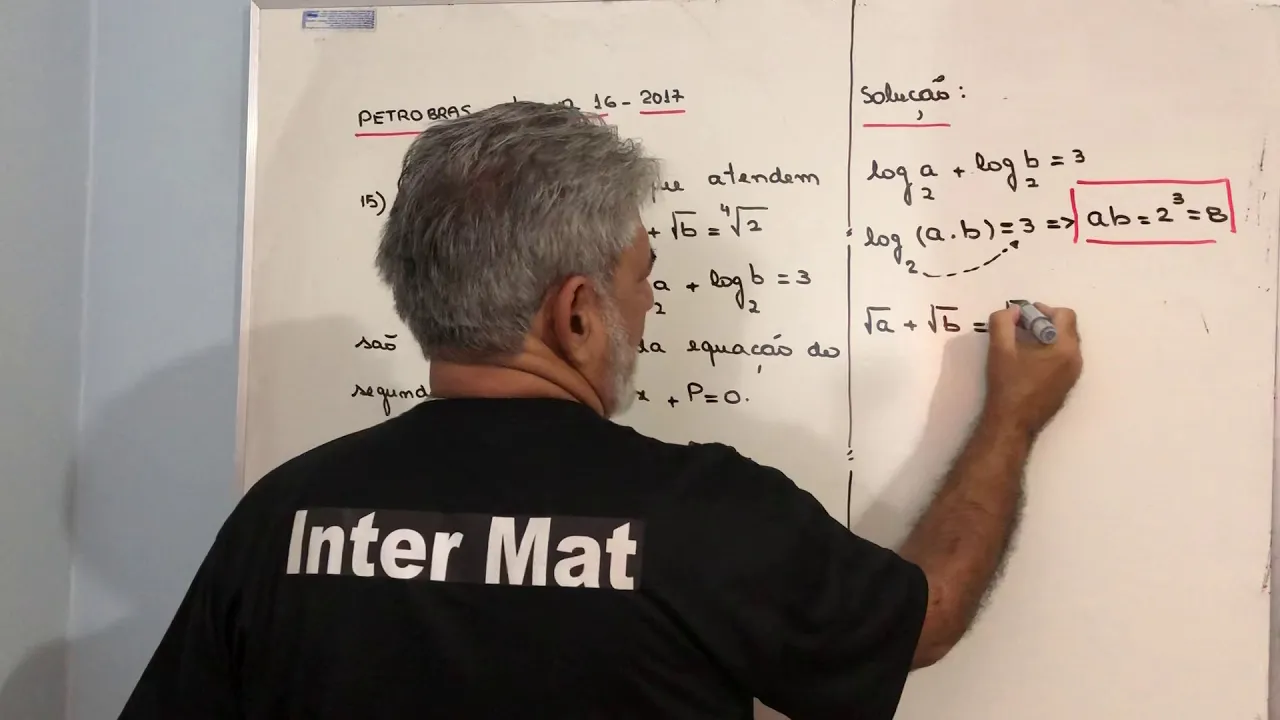 PETROBRAS 16 - 2017
15)
que atendem
+ √b = ⁴√2
a₂ + log₂ b = 3
são da equação do
segund x + P = 0.
Solução:
log₂ a + log₂ b = 3
log₂ (a.b) = 3 => ab = 2³ = 8
√a + √b =
Inter Mat